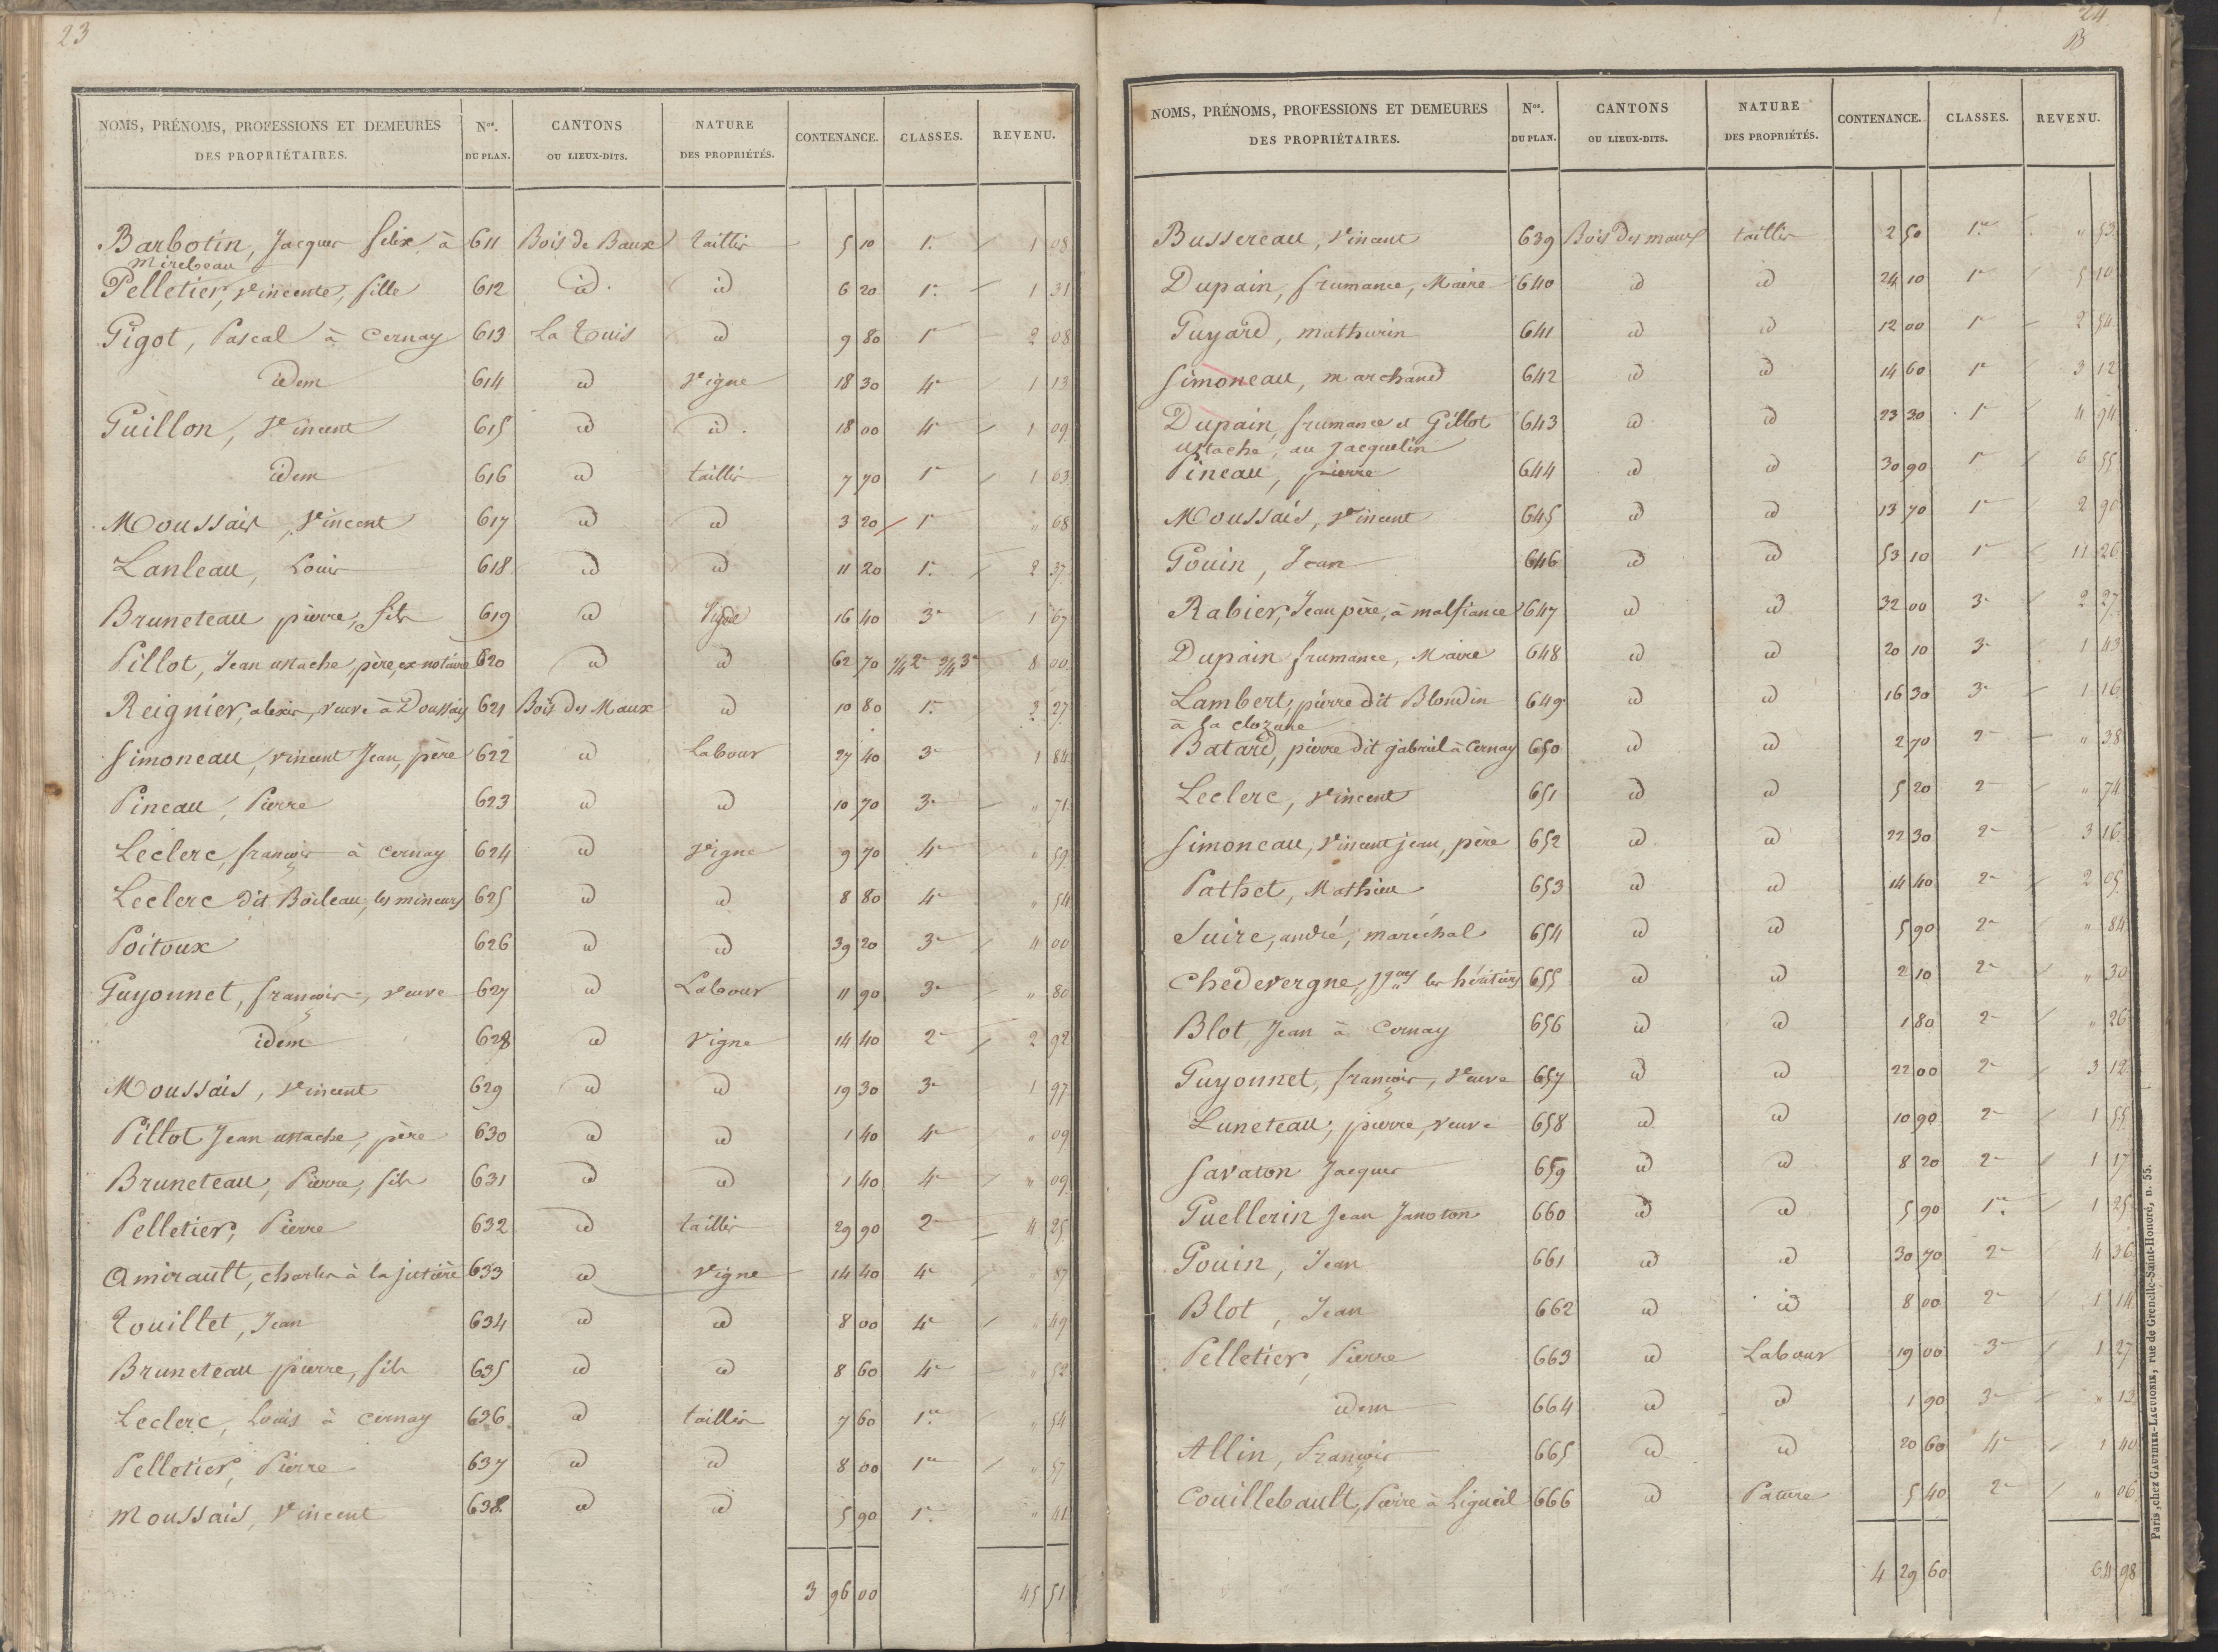 23
NOMS, PRÉNOMS, PROFESSIONS ET DEMEURES DES PROPRIÉTAIRES. Nos. DU PLAN. CANTONS OU LIEUX-DITS. NATURE DES PROPRIÉTÉS. CONTENANCE. CLASSES. REVENU.
Barbotin, Jacques felix à 611 Bois de Baux taillis 5 10 1e 1 08
Mirebeau
Pelletier, Vincente, fille 612 id. id 6 20 1e 1 31
Pigot, Pascal à Cernay 613 La Touis id 9 80 1e 2 08
idem 614 id Vigne 18 30 4e 1 13
Guillon, Vincent 615 id id. 18 00 4e 1 09
idem 616 id taillis 7 70 1e 1 63
Moussais, Vincent 617 id id 3 20 1e " 68
Lanleau, Louis 618 id id 11 20 1e 2 37
Bruneteau pierre, fils 619 id Vigne 16 40 3e 1 67
Pillot, Jean ustache, père, ex-notaire 620 id id 62 70 1/4 2e 3/4 3e 8 00
Reignier, alexis, veuve à Doussay 621 Bois des Maux id 10 80 1e 3 27
Simoneau, vincent Jean, père 622 id Labour 27 40 3e 1 84
Pineau, Pierre 623 id id 10 70 3e " 71
Leclerc, françois à Cernay 624 id Vigne 9 70 4e " 59
Leclerc dit Boileau, les mineurs 625 id id 8 80 4e " 54
Poitoux 626 id id 39 20 3e 4 00
Guyonnet, françois, veuve 627 id Labour 11 90 3e " 80
idem 628 id Vigne 14 40 2e 2 92
Moussais, Vincent 629 id id 19 30 3e 1 97
Pillot Jean ustache, père 630 id id 1 40 4e " 09
Bruneteau, Pierre, fils 631 id id 1 40 4e " 09
Pelletier, Pierre 632 id taillis 29 90 2e 4 25
Amirault, charles à la jutière 633 id Vigne 14 40 4e " 87
Touillet, Jean 634 id id 8 00 4e " 49
Bruneteau pierre, fils 635 id id 8 60 4e " 52
Leclerc, Louis à cernay 636 id taillis 7 60 1re " 54
Pelletier, Pierre 637 id id 8 00 1re " 57
Moussais, Vincent 638 id id 5 90 1e " 41
3 96 00 45 51
24
B
NOMS, PRÉNOMS, PROFESSIONS ET DEMEURES DES PROPRIÉTAIRES. Nos. DU PLAN. CANTONS OU LIEUX-DITS. NATURE DES PROPRIÉTÉS. CONTENANCE. CLASSES. REVENU.
Bussereau, Vincent 639 Bois Des maux taillis 2 50 1re " 53
Dupain, frumance, Maire 640 id id 24 10 1e 5 10
Guyard, mathurin 641 id id 12 00 1e 2 54
Simoneau, marchand 642 id id 14 60 1e 3 12
Dupain, frumance et Gillot 643 id id 23 30 1e 4 94
ustache, au Jacquelin
Pineau, pierre 644 id id 30 90 1e 6 55
Moussais, Vincent 645 id id 13 70 1e 2 90
Gouin, Jean 646 id id 53 10 1e 11 26
Rabier, Jean père, à malfiance 647 id id 32 00 3e 2 27
Dupain frumance, Maire 648 id id 20 10 3e 1 43
Lambert, pierre dit Blondin 649 id id 16 30 3e 1 16
à la clozure
Batard, pierre dit gabriel à Cernay 650 id id 2 70 2e " 38
Leclerc, Vincent 651 id id 5 20 2e " 74
Simoneau, Vincent jean, père 652 id id 22 30 2e 3 16
Pathet, Mathieu 653 id id 14 40 2e 2 05
Suire, andré, maréchal 654 id id 5 90 2e " 84
Chedevergne, les héritiers 655 id id 2 10 2e " 30
Blot Jean à Cernay 656 id id 1 80 2e " 26
Guyonnet, françois, Veuve 657 id id 22 00 2e 3 12
Luneteau, pierre, veuve 658 id id 10 90 2e 1 55
Savaton Jacques 659 id id 8 20 2e 1 17
Guellerin Jean Janoton 660 id id 5 90 1re 1 25
Gouin, Jean 661 id id 30 70 2e 4 36
Blot, Jean 662 id id 8 00 2e 1 14
Pelletier, Pierre 663 id Labour 19 00 3e 1 27
idem 664 id id 1 90 3e " 13
Allin, François 665 id id 20 60 4e 1 40
Couillebault, Pierre à Ligueil 666 id Pature 5 40 2e " 06
4 29 60 64 98
Paris, chez GAUTHIER-LAGUIONIE, rue de Grenelle-Saint-Honoré, n. 55.